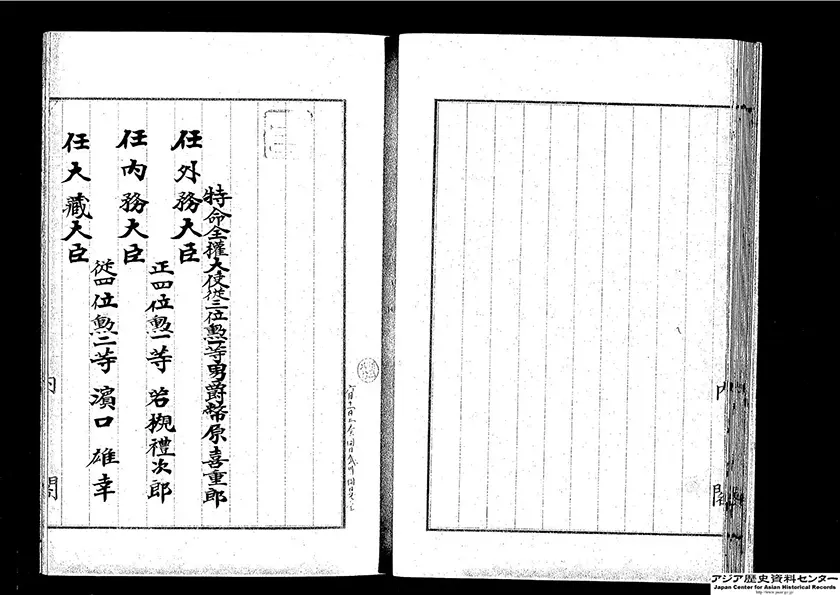 特命全權大使從三位勲一等男爵幣原喜重郎
任外務大臣
正四位勲一等 若槻禮次郎
任内務大臣
從四位勲二等 濱口雄幸
任大藏大臣
内閣
内閣
アジア歴史資料センター
Japan Center for Asian Historical Records
http://www.jacar.go.jp/